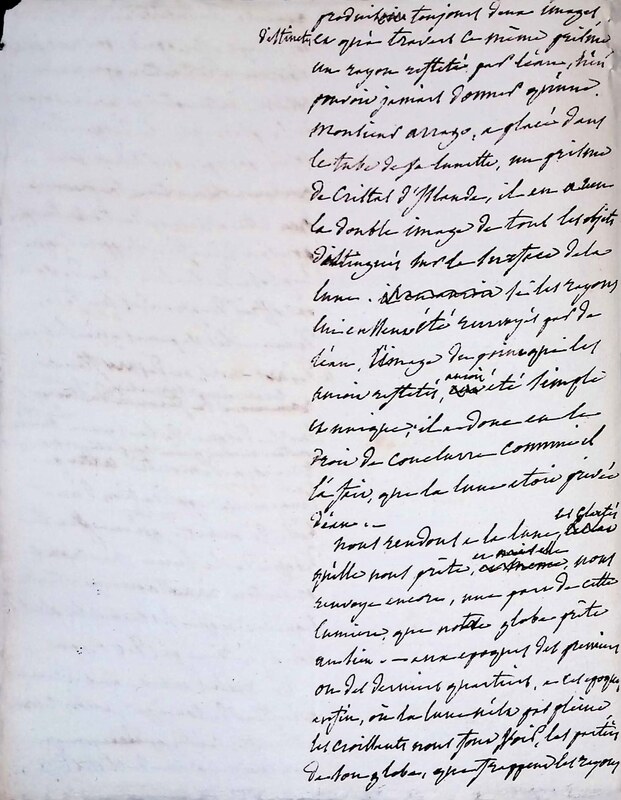 produisir toujours deux images
distinctes, et qu'a travers ce même prisme
un rayon refleté par l'eau, n'en
pouvoir jamais donner qu'une.
monsieur arrago, a placé dans
le tube de sa lunette, un prisme
de Cristal d'Islande, il en a eu
la double image de tous les objets
distingués sur la surface de la
lune. si les rayons
lui eussent été renvoyés par de
l'eau, l'image du prisme qui les
auroit reflétés, auroit été simple
et unique; il a donc eu le
droit de conclurre comme il
l'a fait, que la lune etoit privée
d'eau. —
nous rendons a la lune, les clartés
qu'elle nous prête, et nous
renvoye encore, une part de cette
lumière, que notre globe prête
au sien. — aux epoques des premiers
ou des derniers quartiers, a ces epoques
enfin, où la lune n'est pas pleine,
les croissants nous font voir, les parties
de son globe, que frappent les rayons